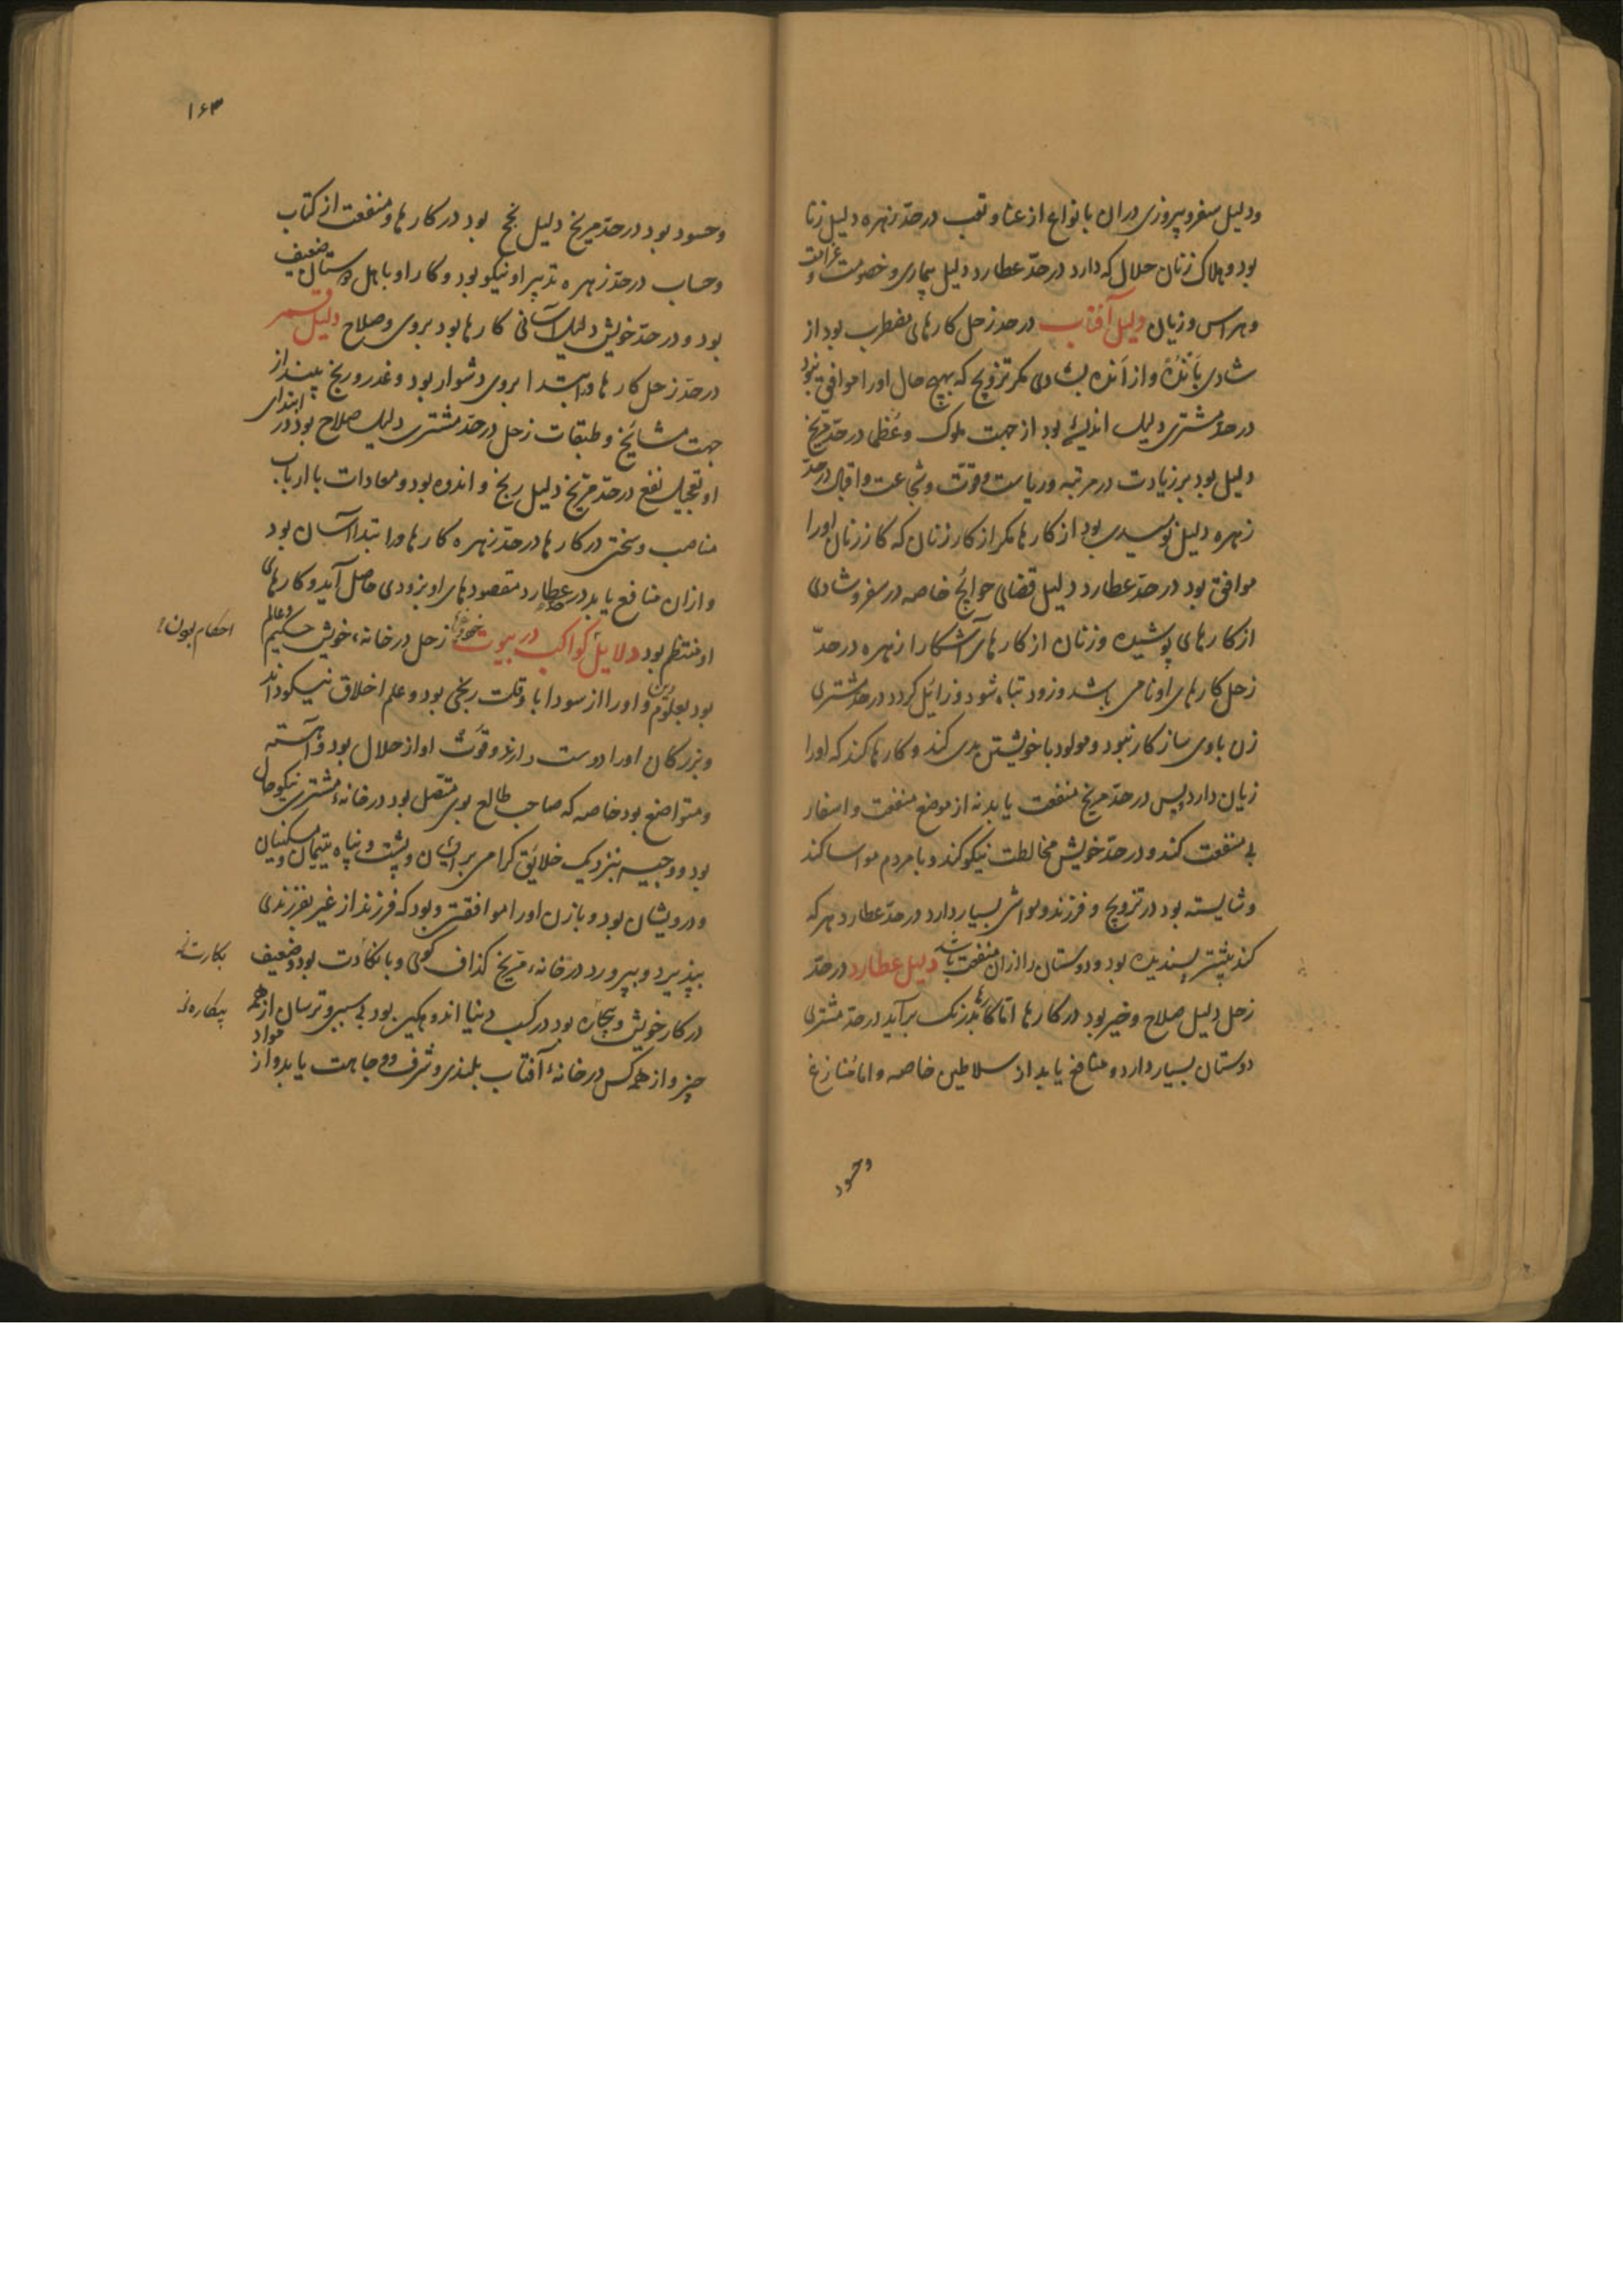 ودلیل سفر و پیروزی در ان بانواع از عنا و تعب در حدّ زهره دلیل زنا
بود و هلاک زنان حلال که دارد در حدّ عطارد دلیل بیماری و خصومت و غرامت
و هراس و زیان دلیل آفتاب در حد زحل کارهای مضطرب بود از
شادی باندُه و از اندُه بشادی مکر تزویج که بهیچ حال اورا موافق نبود
در حدّ مشتری دلیل اندیشهٔ بود از جهت ملوک و عُظَما در حدّ مریخ
دلیل بود بر زیادت در مرتبه و ریاست و قوّت و شجاعت و اقبال در حدّ
زهره دلیل نومیدی بود از کارها مکر از کار زنان که کار زنان اورا
موافق بود در حدّ عطارد دلیل قضای حوائج خاصه در سفر و شادی
از کارهای پوشیده و زنان از کارهای آشکارا زهره در حدّ
زحل کارهای او نامی باشد و زود تباه شود و زائل کردد در حدّ مشتری
زن باوی سازکار نبود و مولود با خویشتن بدی کند و کارها کند که اورا
زیان دارد پس در حدّ مریخ منفعت یابد نه از موضع منفعت و اسفار
بی منفعت کند و در حدّ خویش مخالطت نیکو کند و با مردم مواسا کند
و شایسته بود در تزویج و فرزند و مواشی بسیار دارد در حدّ عطارد هرکه
کند بیشتر پسندیده بود و دوستان را ازان منفعت باشد دلیل عطارد در حدّ
زحل دلیل صلاح و خیر بود در کارها امّا کارها بدرنک برآید در حدّ مشتری
دوستان بسیار دارد و منافع یابد از سلاطین خاصه و اما مُنازع
وحسود
۱۶۳
وحسود بود در حدّ مریخ دلیل نجح بود در کارها و منفعت از کتاب
و حساب در حدّ زهره تدبیر او نیکو بود و کار او با اهل دوستان ضعیف
بود و در حدّ خویش دلیل آسانی کارها بود بروی و صلاح دلیل قمر
در حدّ زحل کارها در ابتدا بروی دشوار بود و غدر و رنج بیند از
جهت مشایخ و طبقات زحل در حدّ مشتری دلیل صلاح بود در ابتدای
او تعجیل نفع در حدّ مریخ دلیل رنج و اندوه بود و معادات با ارباب
مناصب و سختی در کارها در حدّ زهره کارها در ابتدا آسان بود
و ازان منافع یابد در حدّ عطارد مقصودهای او بزودی حاصل آید و کارهای
او منتظم بود دلایل کواکب در بیوت زحل در خانهٔ خویش حکیم و عالم
احکام بیوت
بود بعلوم دین و اورا از سودا با وقت رنجی بود و علم اخلاق نیکو داند
و بزرکان اورا دوست دارند و قوت او از حلال بود و آهسته
و متواضع بود خاصه که صاحب طالع بوی متصل بود در خانهٔ مشتری نیکو حال
بود و وجیه بنزدیک خلائق کرامی بر ایشان و پشت و پناه یتیمان و مسکینان
و درویشان بود و با زن اورا موافقتی بود که فرزند از غیر بفرزندی
بپذیرد و بپرورد در خانهٔ مریخ کذاف کوی و با نکادت بود و ضعیف
در کار خویش و بیچاره بود در کسب دنیا اندوهکین بود بی سببی و ترسان از همه
چیز و از همه کس در خانهٔ آفتاب بلندی و شرف و وجاهت یابد و از مواد